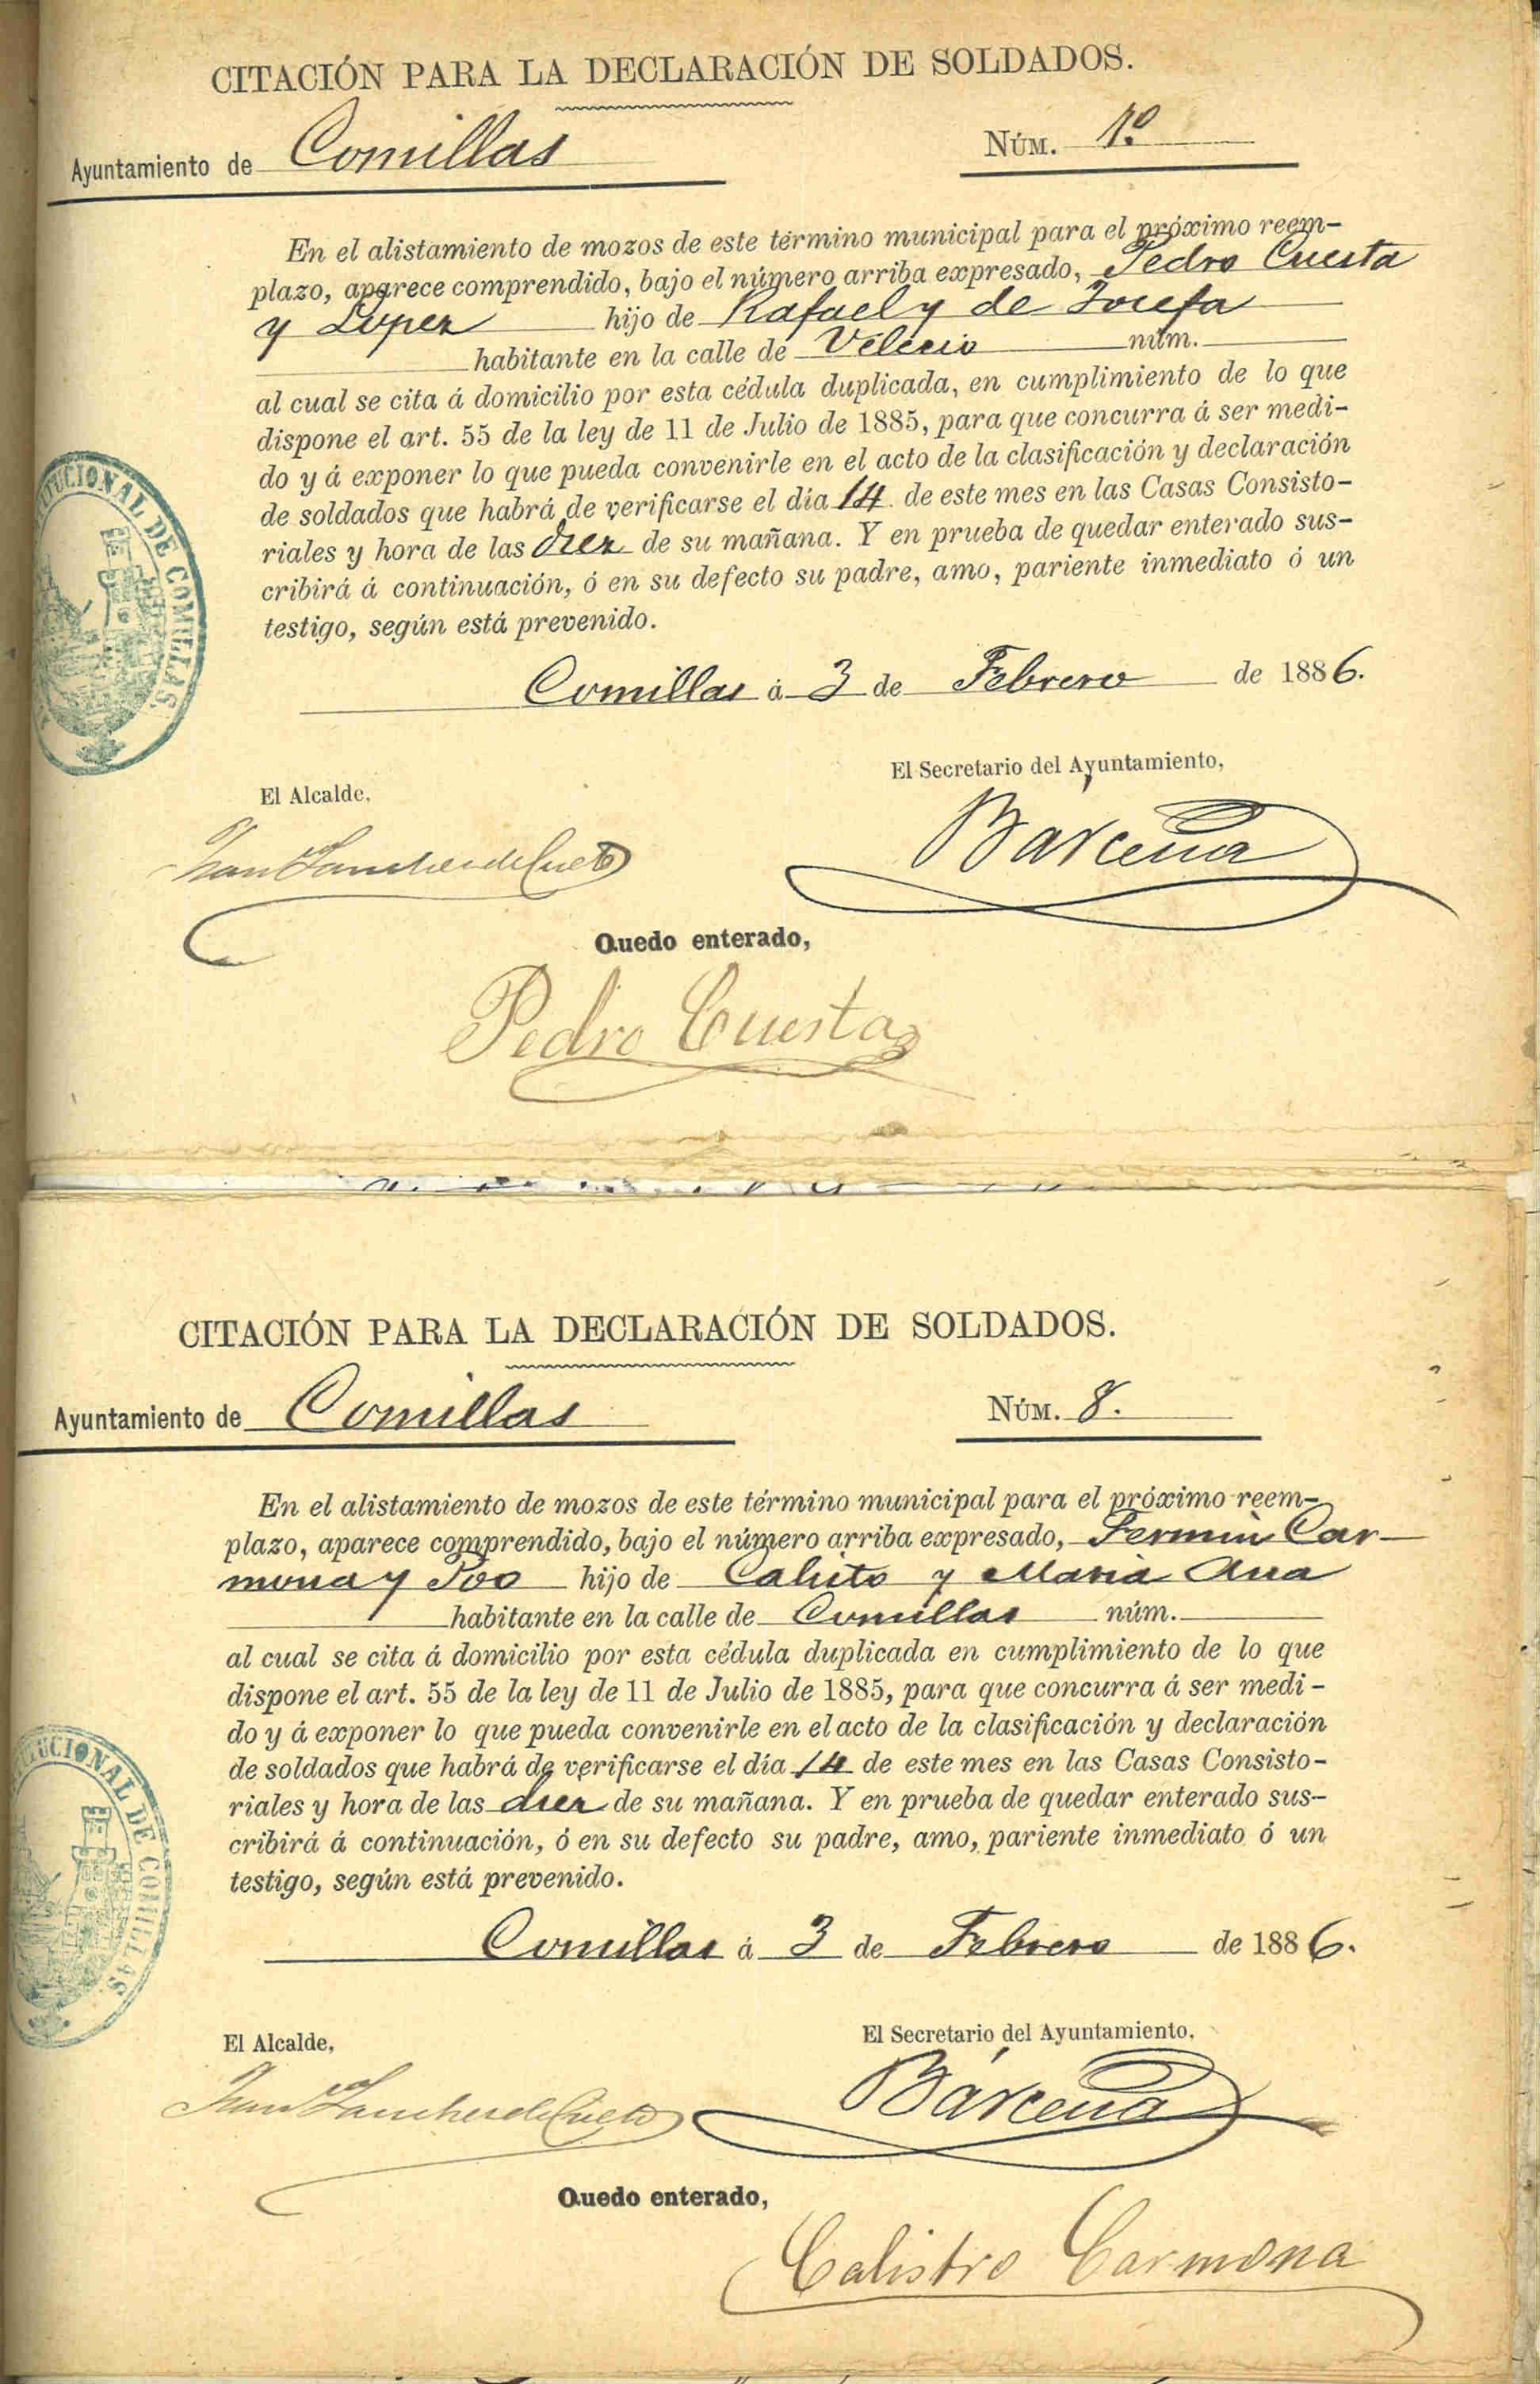 CITACIÓN PARA LA DECLARACIÓN DE SOLDADOS.
Ayuntamiento de Comillas
NÚM. 1º
En el alistamiento de mozos de este término municipal para el próximo reem-
plazo, aparece comprendido, bajo el número arriba expresado, Pedro Cuesta
y Lopez hijo de Rafael y de Josefa
habitante en la calle de Velecio núm.
al cual se cita á domicilio por esta cédula duplicada, en cumplimiento de lo que
dispone el art. 55 de la ley de 11 de Julio de 1885, para que concurra á ser medi-
do y á exponer lo que pueda convenirle en el acto de la clasificación y declaración
de soldados que habrá de verificarse el día 14 de este mes en las Casas Consisto-
riales y hora de las diez de su mañana. Y en prueba de quedar enterado sus-
cribirá á continuación, ó en su defecto su padre, amo, pariente inmediato ó un
testigo, según está prevenido.
Comillas á 3 de Febrero de 1886.
El Alcalde,
El Secretario del Ayuntamiento,
Juan Sanchez de Cueto
Bárcena
Quedo enterado,
Pedro Cuesta
TUCIONAL DE COMILLAS
CITACIÓN PARA LA DECLARACIÓN DE SOLDADOS.
Ayuntamiento de Comillas
NÚM. 8.
En el alistamiento de mozos de este término municipal para el próximo reem-
plazo, aparece comprendido, bajo el número arriba expresado, Fermin Car-
mona y Poo hijo de Calisto y Maria Ana
habitante en la calle de Comillas núm.
al cual se cita á domicilio por esta cédula duplicada en cumplimiento de lo que
dispone el art. 55 de la ley de 11 de Julio de 1885, para que concurra á ser medi-
do y á exponer lo que pueda convenirle en el acto de la clasificación y declaración
de soldados que habrá de verificarse el día 14 de este mes en las Casas Consisto-
riales y hora de las diez de su mañana. Y en prueba de quedar enterado sus-
cribirá á continuación, ó en su defecto su padre, amo, pariente inmediato ó un
testigo, según está prevenido.
Comillas á 3 de Febrero de 1886.
El Alcalde,
El Secretario del Ayuntamiento,
Juan Sanchez de Cueto
Bárcena
Quedo enterado,
Calistro Carmona
TUCIONAL DE COMILLAS